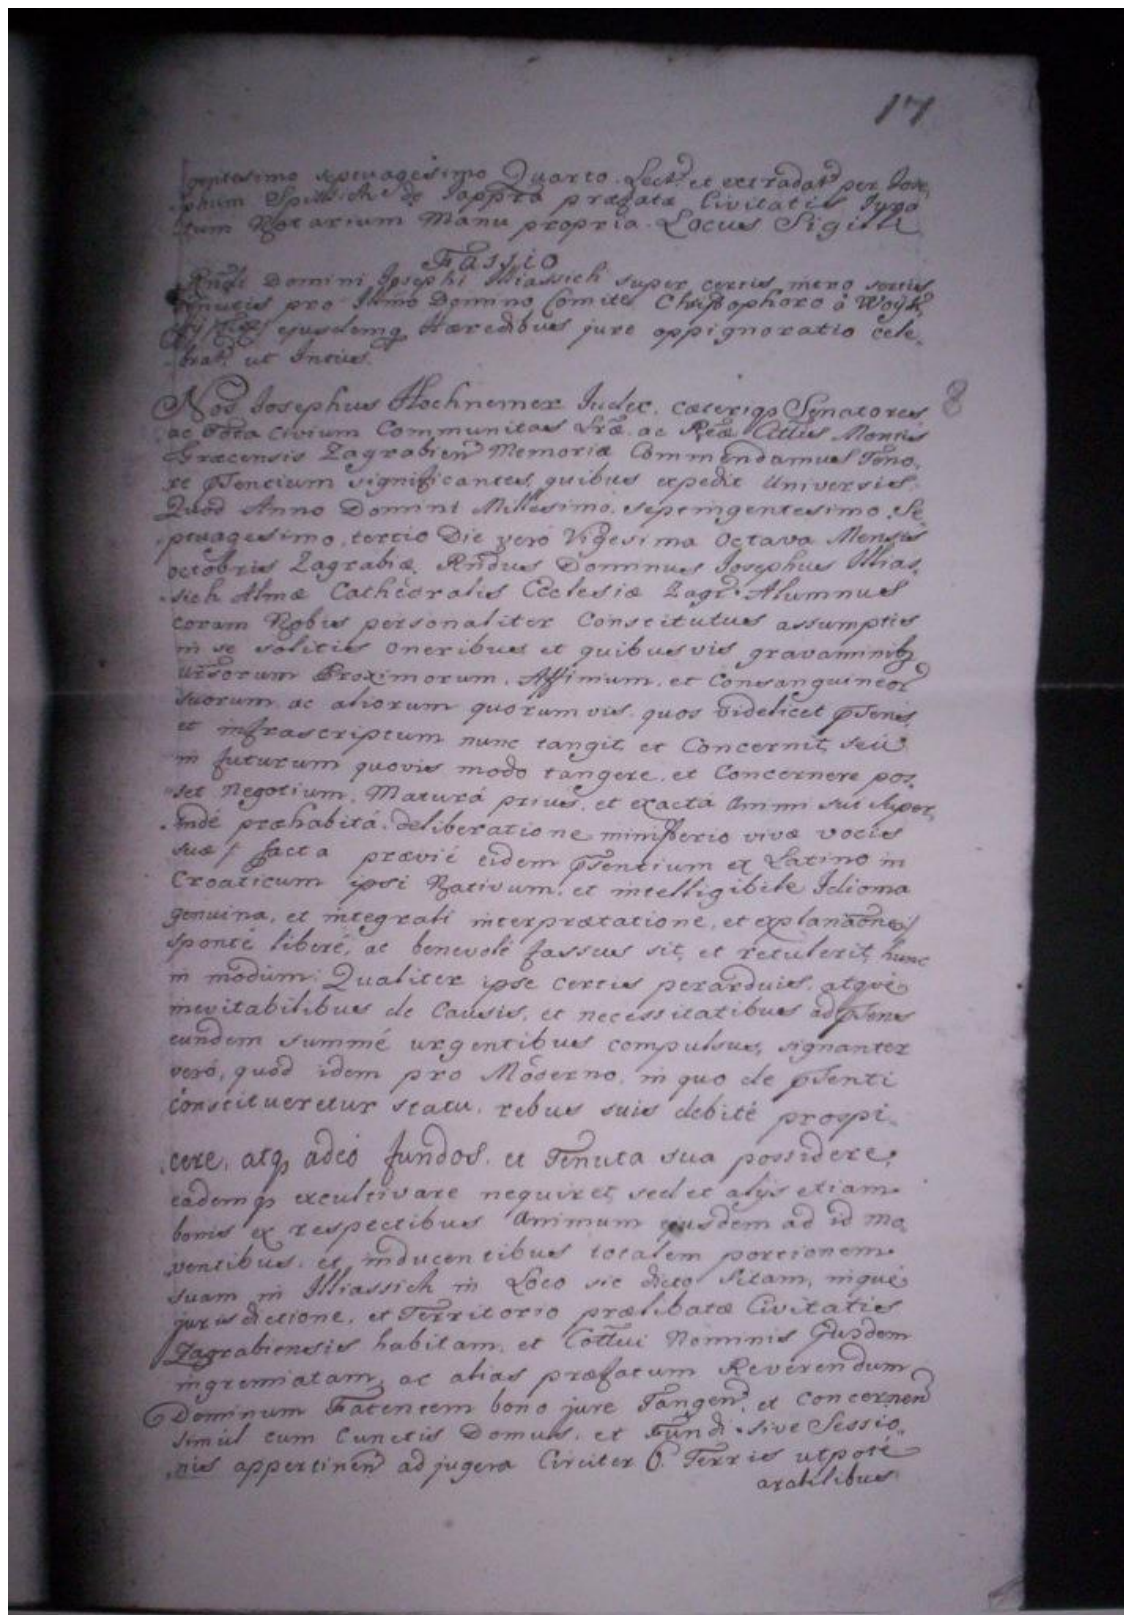 17
gentesimo septuagesimo Quarto. Lect. et extradat. per Jose
phum de Sappra præfatæ Civitatis Jura
tum Notarium Manu propria. Locus Sigilli
Fassio
Rndi Domini Josephi Illiassich super certis intro sertis
tenutis pro Illmo Domino Comite Christophoro à
ejusdemq Hæredibus jure oppignoratio cele,
brat. ut Intus.
8
Nos Josephus Hochnemer Judex, cæteriqs Senatores
ac Tota Civium Communitas Lræ ac Reæ Cittis Montis
Græcensis Zagrabien Memoriæ Commendamus Teno,
re pntencium significantes, quibus expedit Universis.
Quod Anno Domini Millesimo, septingentesimo, Se
ptuagesimo, tertio Die verò Vigesima Octava Mensis
octobris Zagrabiæ. Rndus Dominus Josephus Illias,
sich Almæ Cathedralis Ecclesiæ Zagr. Alumnus
coram Nobis personaliter Constitutus assumptis
in se solitis Oneribus et quibusvis gravaminibq
universorum Proximorum, Affinium, et Consanguineor
suorum, ac aliorum quorumvis, quos videlicet pntens,
et infrascriptum nunc tangit, et Concernit, seù
in futurum quovis modo tangere, et Concernere pos,
set Negotium, Maturá prius, et exactá Animi sui super
indé præhabitá, deliberatione ministerio vivæ vocis
suæ / facta prævié eidem pntentium ex Latino in
Croaticum ipsi Nativum, et intelligibile Idioma
genuina, et integrali interprætatione, et explanaone /
sponté liberé, ac benevolé fassus sit, et retulerit, hunc
in modum: Qualiter ipse certis perarduis, atqué
inevitabilibus de Causis, et necessitatibus ad pntens
eundem summé urgentibus compulsus, signanter
veró, quód idem pro Moderno, in quo de pntenti
constitueretur statu, rebus suis debité prospi,
cere, atqs adeó fundos, et Tenuta sua possidere,
eademqs excultivare nequiret, sed et alÿs etiam
bonis ex respectibus Animum ejusdem ad id mo,
ventibus, et inducentibus totalem portionem
suam in Illiassich in Loco sic dicto sitam, inqué
jurisdictione, et Territorio prælibatæ Civitatis
Zagrabiensis habitam, et Cottui Nominis Ejusdem
ingremiatam, ac alias præfatum Reverendum
Dominum Fatentem bono jure Tangen, et concernen
simul cum Cunctis Domus, et Fundi sive Sessio,
nis appertinen ad jugera Circiter 6. Terris utpoté
arabilibus